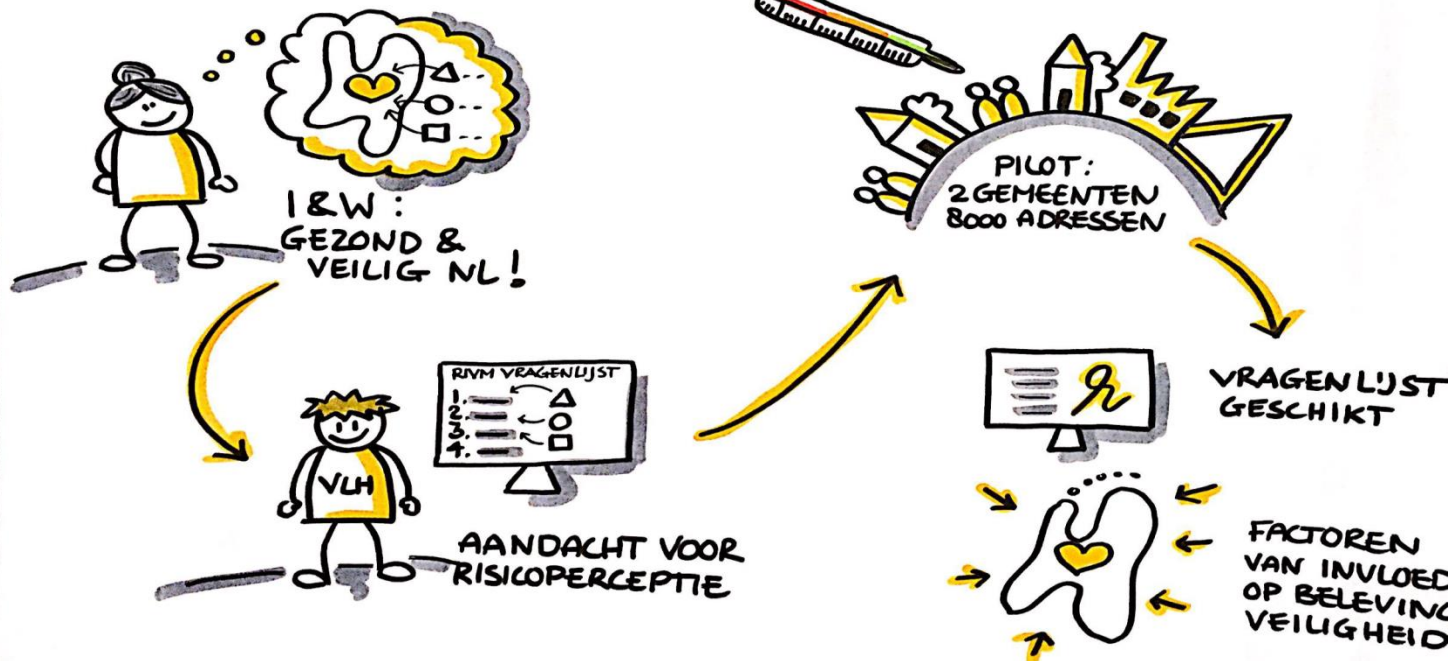 I&W:
GEZOND &
VEILIG NL!
RIVM VRAGENLIJST
1.
2.
3.
4.
VLH
AANDACHT VOOR
RISICOPERCEPTIE
PILOT:
2 GEMEENTEN
8000 ADRESSEN
VRAGENLIJST
GESCHIKT
FACTOREN
VAN INVLOED
OP BELEVING
VEILIGHEID